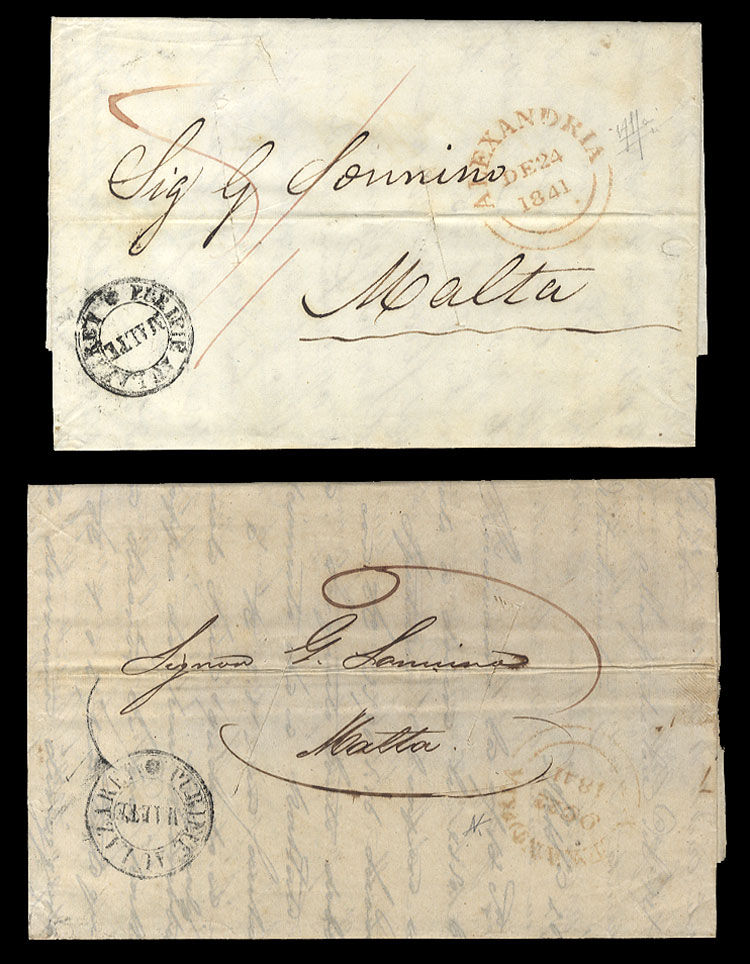 ALEXANDRIA
DE 24
1841
Sig G Sonnino
Malta
PURIFIE AU LAZARET
MALTE
Signor G. Sonnino
Malta.
PURIFIE AU LAZARET
MALTE
1841